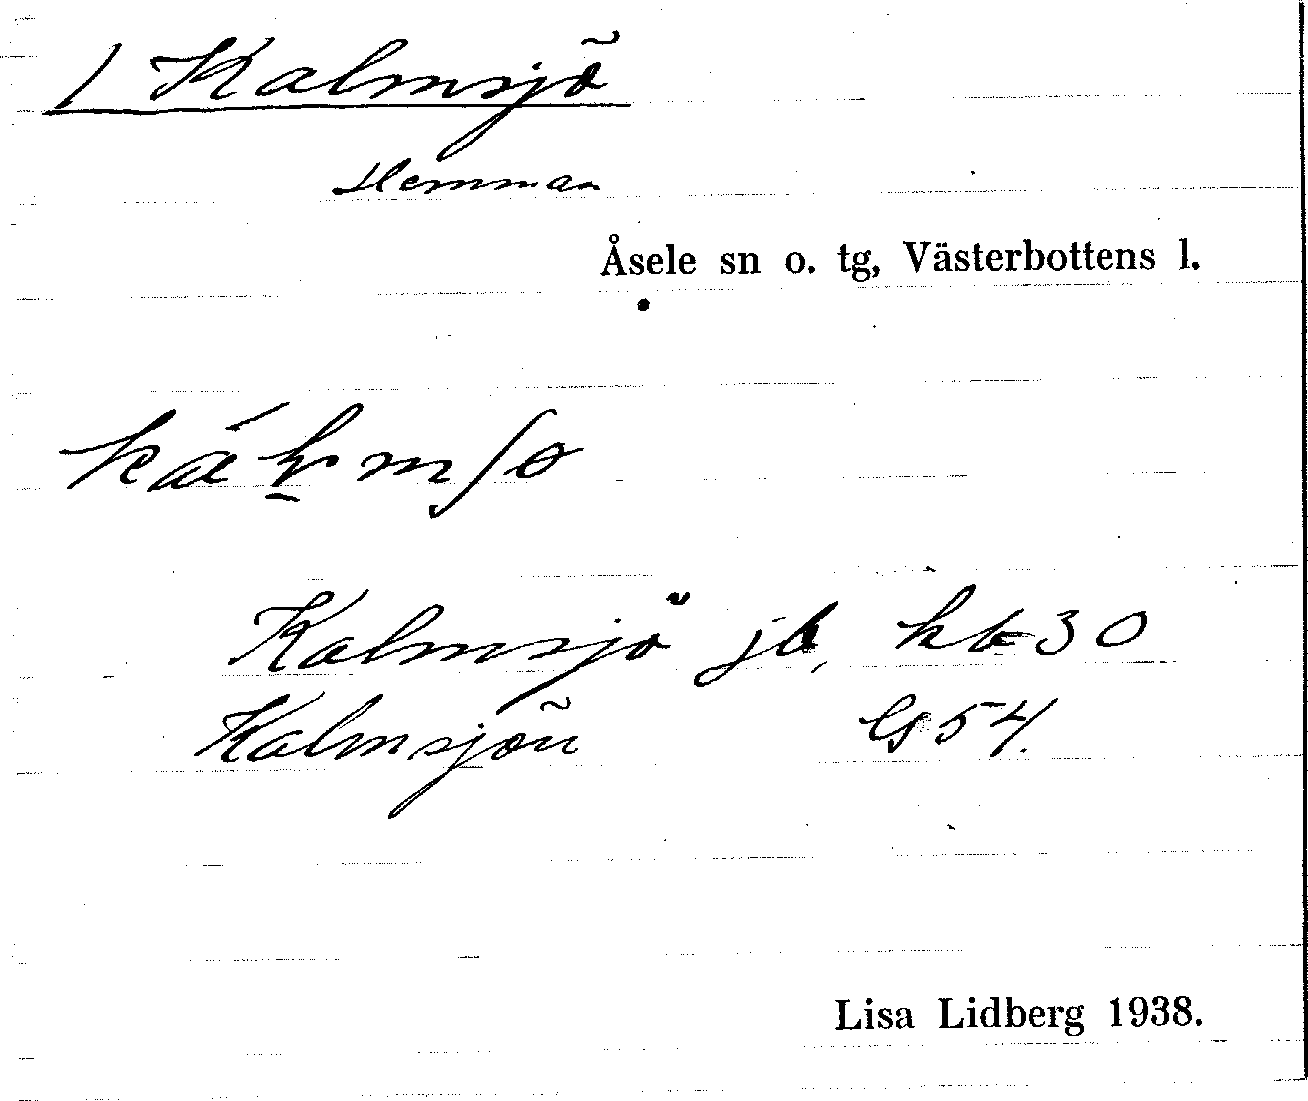 1 Kalmsjö
Hemman
Åsele sn o. tg, Västerbottens l.
Kalmsjö jb, hb 30
Kalmsjön GS 54.
Lisa Lidberg 1938.